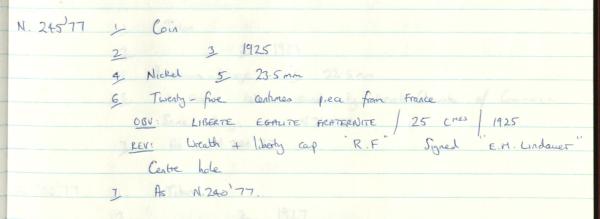 N. 245'77 1 Coin
2 3 1925
4 Nickel 5 23.5mm
6 Twenty-five centimes piece from France
OBV: LIBERTE EGALITE FRATERNITE / 25 CMES / 1925
REV: Wreath + liberty cap "R.F" Signed "E.M. Lindauer"
Centre hole
7 As N.240'77.